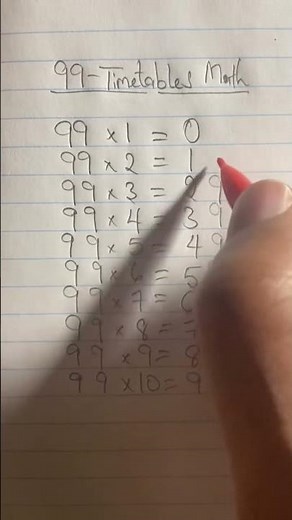 99-Timetables Math
99 × 1 = 0
99 × 2 = 1
99 × 3 = 2 9
99 × 4 = 3 9
99 × 5 = 4 9
99 × 6 = 5
99 × 7 = 6
99 × 8 = 7
99 × 9 = 8
99 × 10 = 9